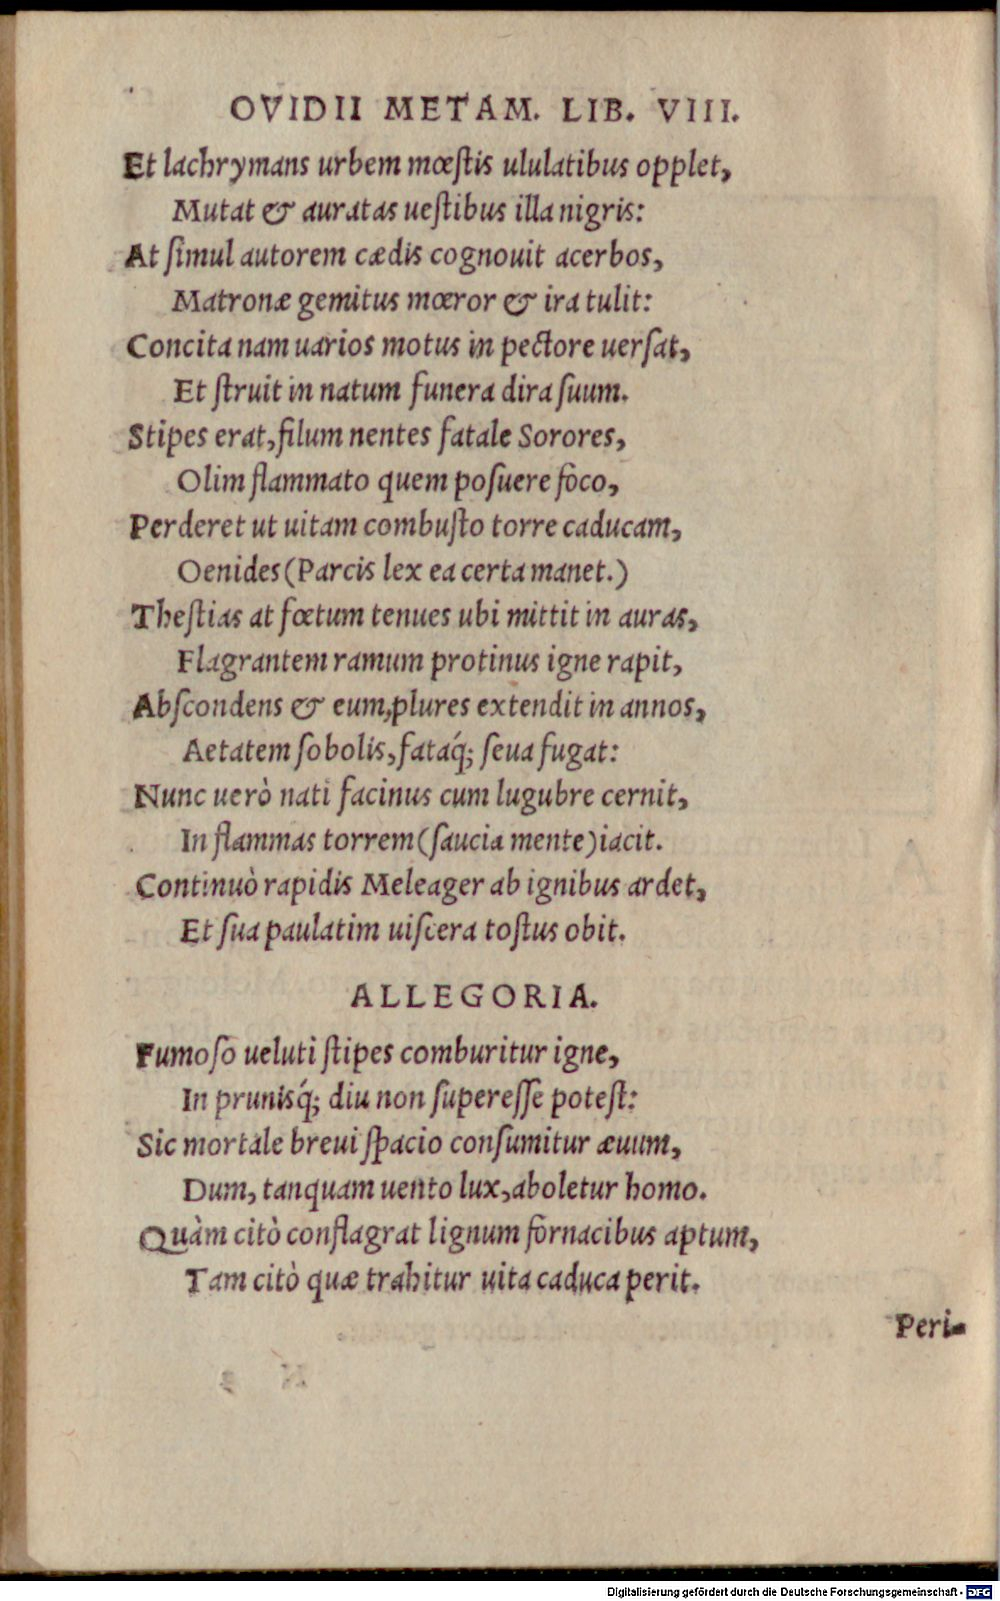 OVIDII METAM. LIB. VIII.
Et lachrymans urbem mœstis ululatibus opplet,
Mutat & auratas uestibus illa nigris:
At simul autorem cædis cognouit acerbos,
Matronæ gemitus mœror & ira tulit:
Concita nam uarios motus in pectore uersat,
Et struit in natum funera dira suum.
Stipes erat, filum nentes fatale Sorores,
Olim flammato quem posuere foco,
Perderet ut uitam combusto torre caducam,
Oenides (Parcis lex ea certa manet.)
Thestias at fœtum tenues ubi mittit in auras,
Flagrantem ramum protinus igne rapit,
Abscondens & eum, plures extendit in annos,
Aetatem sobolis, fataq́; seua fugat:
Nunc uerò nati facinus cum lugubre cernit,
In flammas torrem (saucia mente) iacit.
Continuò rapidis Meleager ab ignibus ardet,
Et sua paulatim uiscera tostus obit.
ALLEGORIA.
Fumoso ueluti stipes comburitur igne,
In prunisq́; diu non superesse potest:
Sic mortale breui spacio consumitur æuum,
Dum, tanquam uento lux, aboletur homo.
Quàm citò conflagrat lignum fornacibus aptum,
Tam citò quæ trahitur uita caduca perit.
Peri-
Digitalisierung gefördert durch die Deutsche Forschungsgemeinschaft - DFG